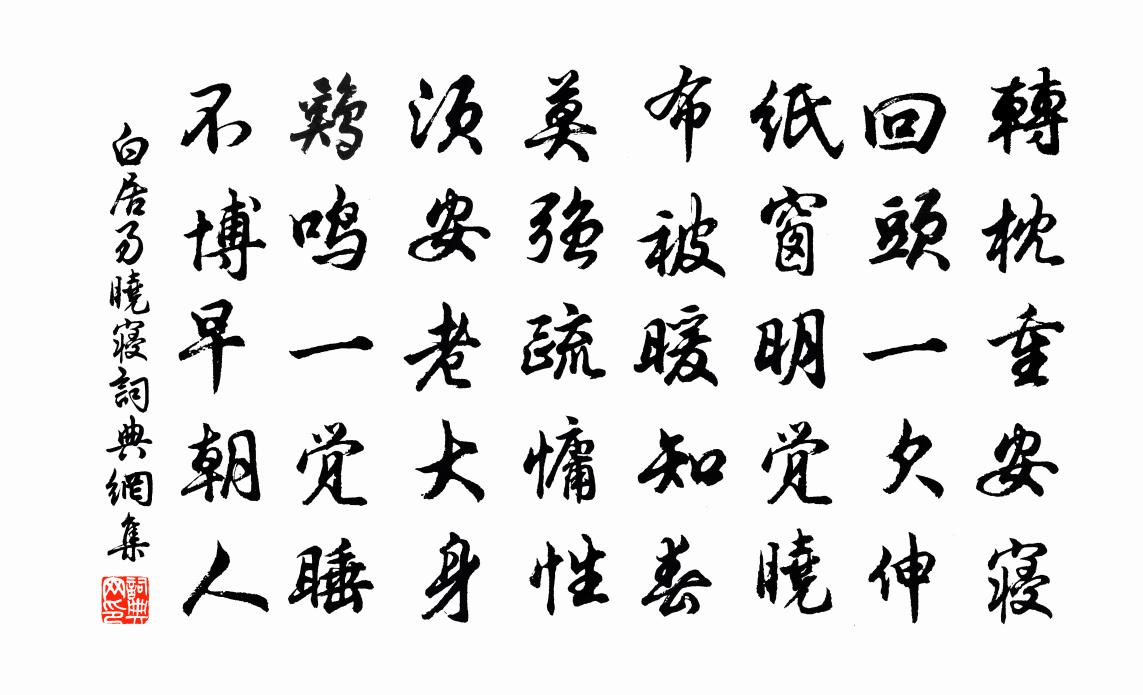 轉枕重安寢
回頭一欠伸
紙窗明覚曉
布被暖知春
莫強疏慵性
須安老大身
鶏鳴一覚睡
不博早朝人
白居易曉寢詞典網集
詞典网印